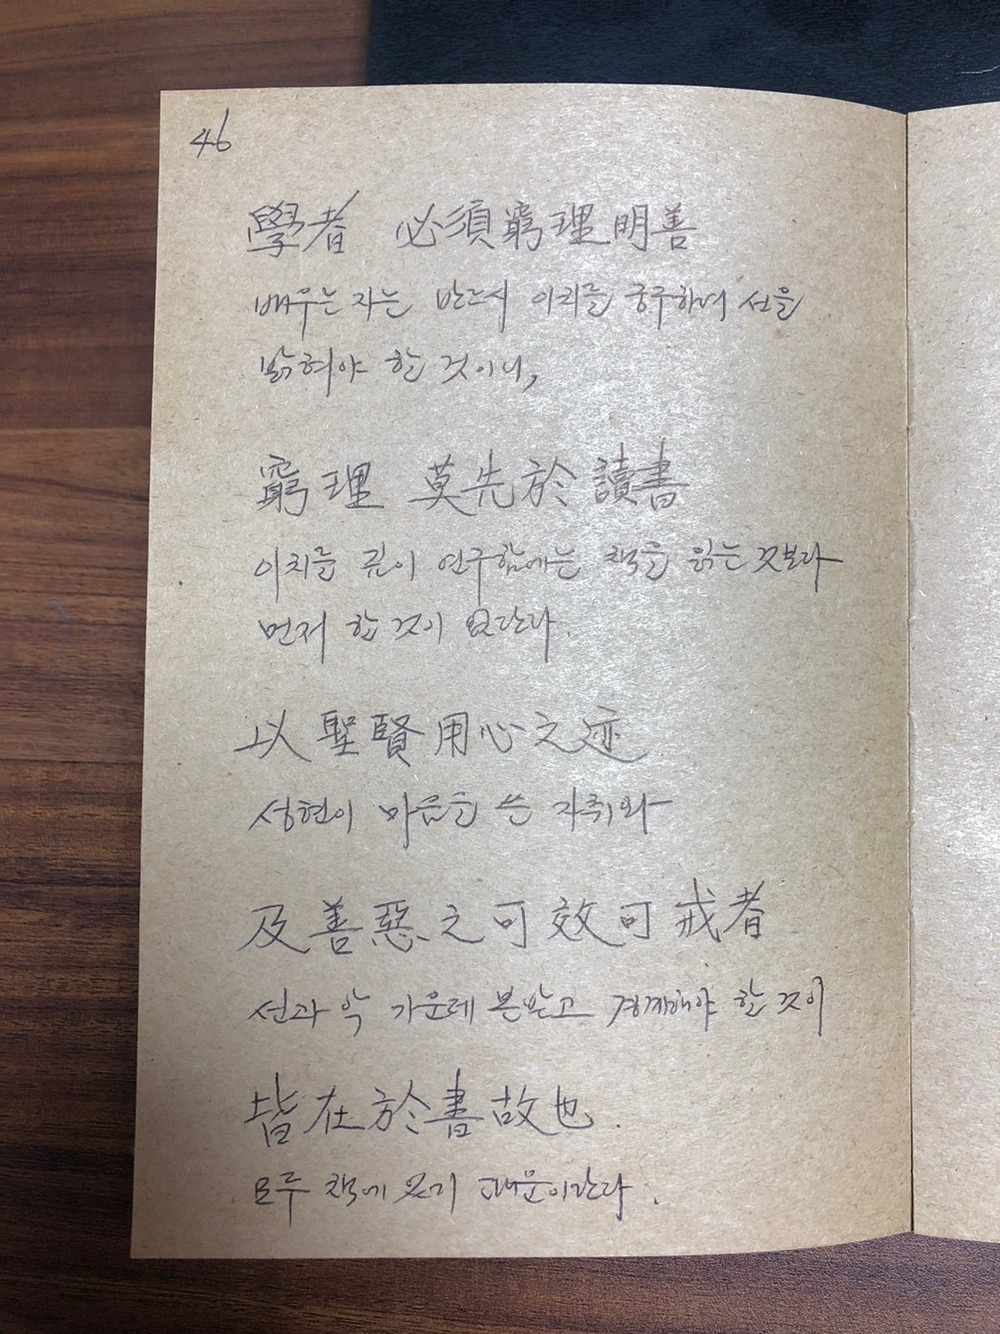 46
學者 必須窮理明善
배우는 자는 반드시 이치를 궁구하여 선을
밝혀야 할 것이니,
窮理 莫先於讀書
이치를 깊이 연구함에는 책을 읽는 것보다
먼저 할 것이 없단다.
以聖賢用心之迹
성현이 마음을 쓴 자취와
及善惡之可效可戒者
선과 악 가운데 본받고 경계해야 할 것이
皆在於書故也.
모두 책에 있기 때문이란다.